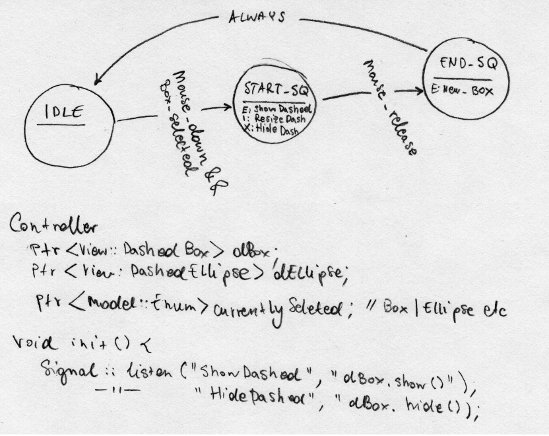 ALWAYS
IDLE
Mouse-down &&
Box-selected
START_SQ
E: Show Dashed
I: Resize Dash
X: Hide Dash
Mouse-release
END-SQ
E: New-Box
Controller
Ptr <View::Dashed Box> dBox;
Ptr <View::DashedEllipse> dEllipse;
Ptr <Model::Enum> currentlySeleted; // Box | Ellipse etc
void init() {
Signal :: listen ("ShowDashed", "dBox.show()"),
—"— "HideDashed", "dBox. hide());